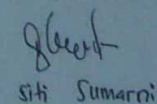 Siti Sumarni